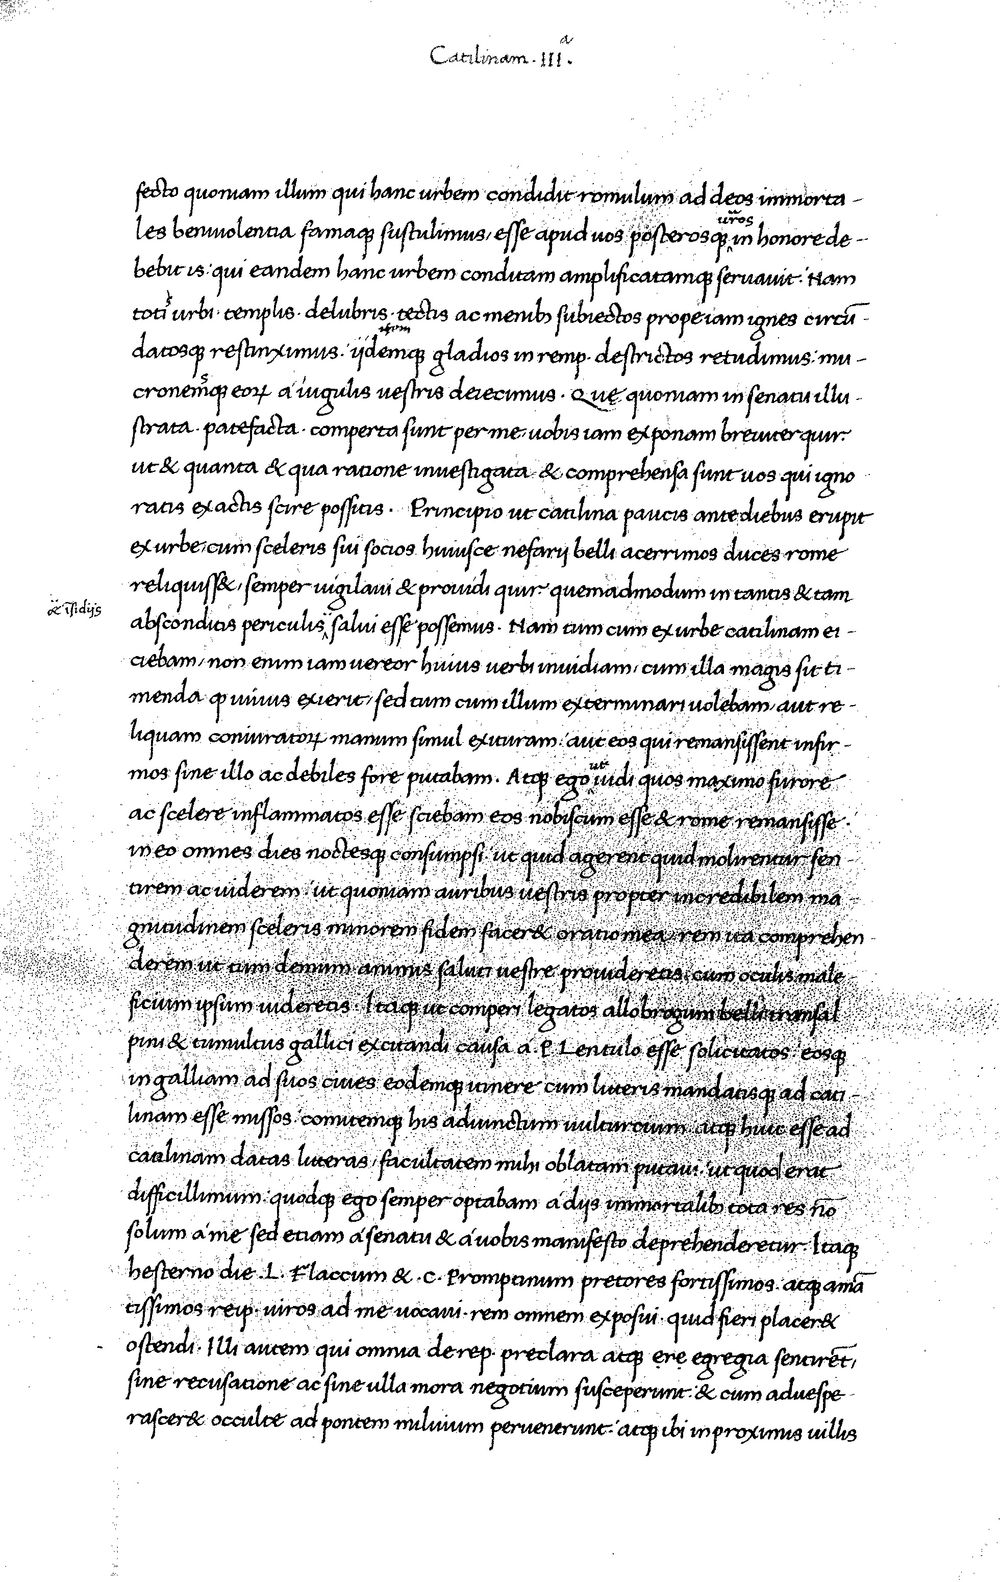 Catilinam · III · a
fecto quoniam illum qui hanc urbem condidit romulum ad deos immorta -
les beniuolentia famaqꝫ sustulimus, esse apud uos posterosqꝫ in honore de -
ur̄os
bebit is: qui eandem hanc urbem conditam amplificatamqꝫ seruauit: Nam
toti urbi · templis · delubris · tectis ac menibꝫ subiectos prope iam ignes circū -
datosqꝫ restinximus: ijdemqꝫ gladios in remp. destrictos retudimus: mu -
cronemqꝫ eoꝝ a iugulis uestris deiecimus. Quę quoniam in senatu illu -
strata · patefacta · comperta sunt per me: uobis iam exponam breuiter quir.
ut & quanta & qua ratione inuestigata & comprehensa sunt uos qui igno
ratis ex actis scire possitis. Principio ut catilina paucis ante diebus erupit
ex urbe, cum sceleris sui socios huiusce nefarij belli acerrimos duces rome
reliquiss&, semper uigilaui & prouidi quir. quemadmodum in tantis & tam
& īsidijs
absconditis periculis salui esse possemus. Nam tum cum ex urbe catilinam ei -
ciebam, non enim iam uereor huius uerbi inuidiam, cum illa magis sit ti -
menda ꝙ uiuus exierit, sed tum cum illum exterminari uolebam, aut re -
liquam coniuratoꝝ manum simul exituram: aut eos qui remansissent infir -
mos sine illo ac debiles fore putabam. Atqꝫ ego ut uidi quos maximo furore
ac scelere inflammatos esse sciebam eos nobiscum esse & rome remansisse:
in eo omnes dies noctesqꝫ consumpsi: ut quid agerent quid molirentur sen -
tirem ac uiderem: ut quoniam auribus uestris propter incredibilem ma -
gnitudinem sceleris minorem fidem facer& oratio mea, rem ita comprehen
derem ut tum demum animis saluti uestre prouideretis, cum oculis male -
ficium ipsum uideretis. Itaqꝫ ut comperi legatos allobrogum belli transal
pini & tumultus gallici excitandi causa a .P. Lentulo esse solicitatos: eosqꝫ
in galliam ad suos ciues eodemqꝫ itinere cum litteris mandatisqꝫ ad cati -
linam esse missos: comitemqꝫ his adiunctum uulturtium: atqꝫ huic esse ad
catilinam datas litteras, facultatem mihi oblatam putaui: ut quod erat
difficillimum: quodqꝫ ego semper optabam a dijs immortalibꝫ tota res nō
solum a me sed etiam a senatu & a uobis manifesto deprehenderetur. Itaqꝫ
hesterno die .L. Flaccum & .C. Promptinum pretores fortissimos: atqꝫ amā
tissimos reip. uiros ad me uocaui: rem omnem exposui: quid fieri placer&
ostendi. Illi autem qui omnia de rep. preclara atqꝫ egregia sentirēt,
sine recusatione ac sine ulla mora negotium susceperunt: & cum aduespe -
rascer& occulte ad pontem miluium peruenerunt: atqꝫ ibi in proximis uillis